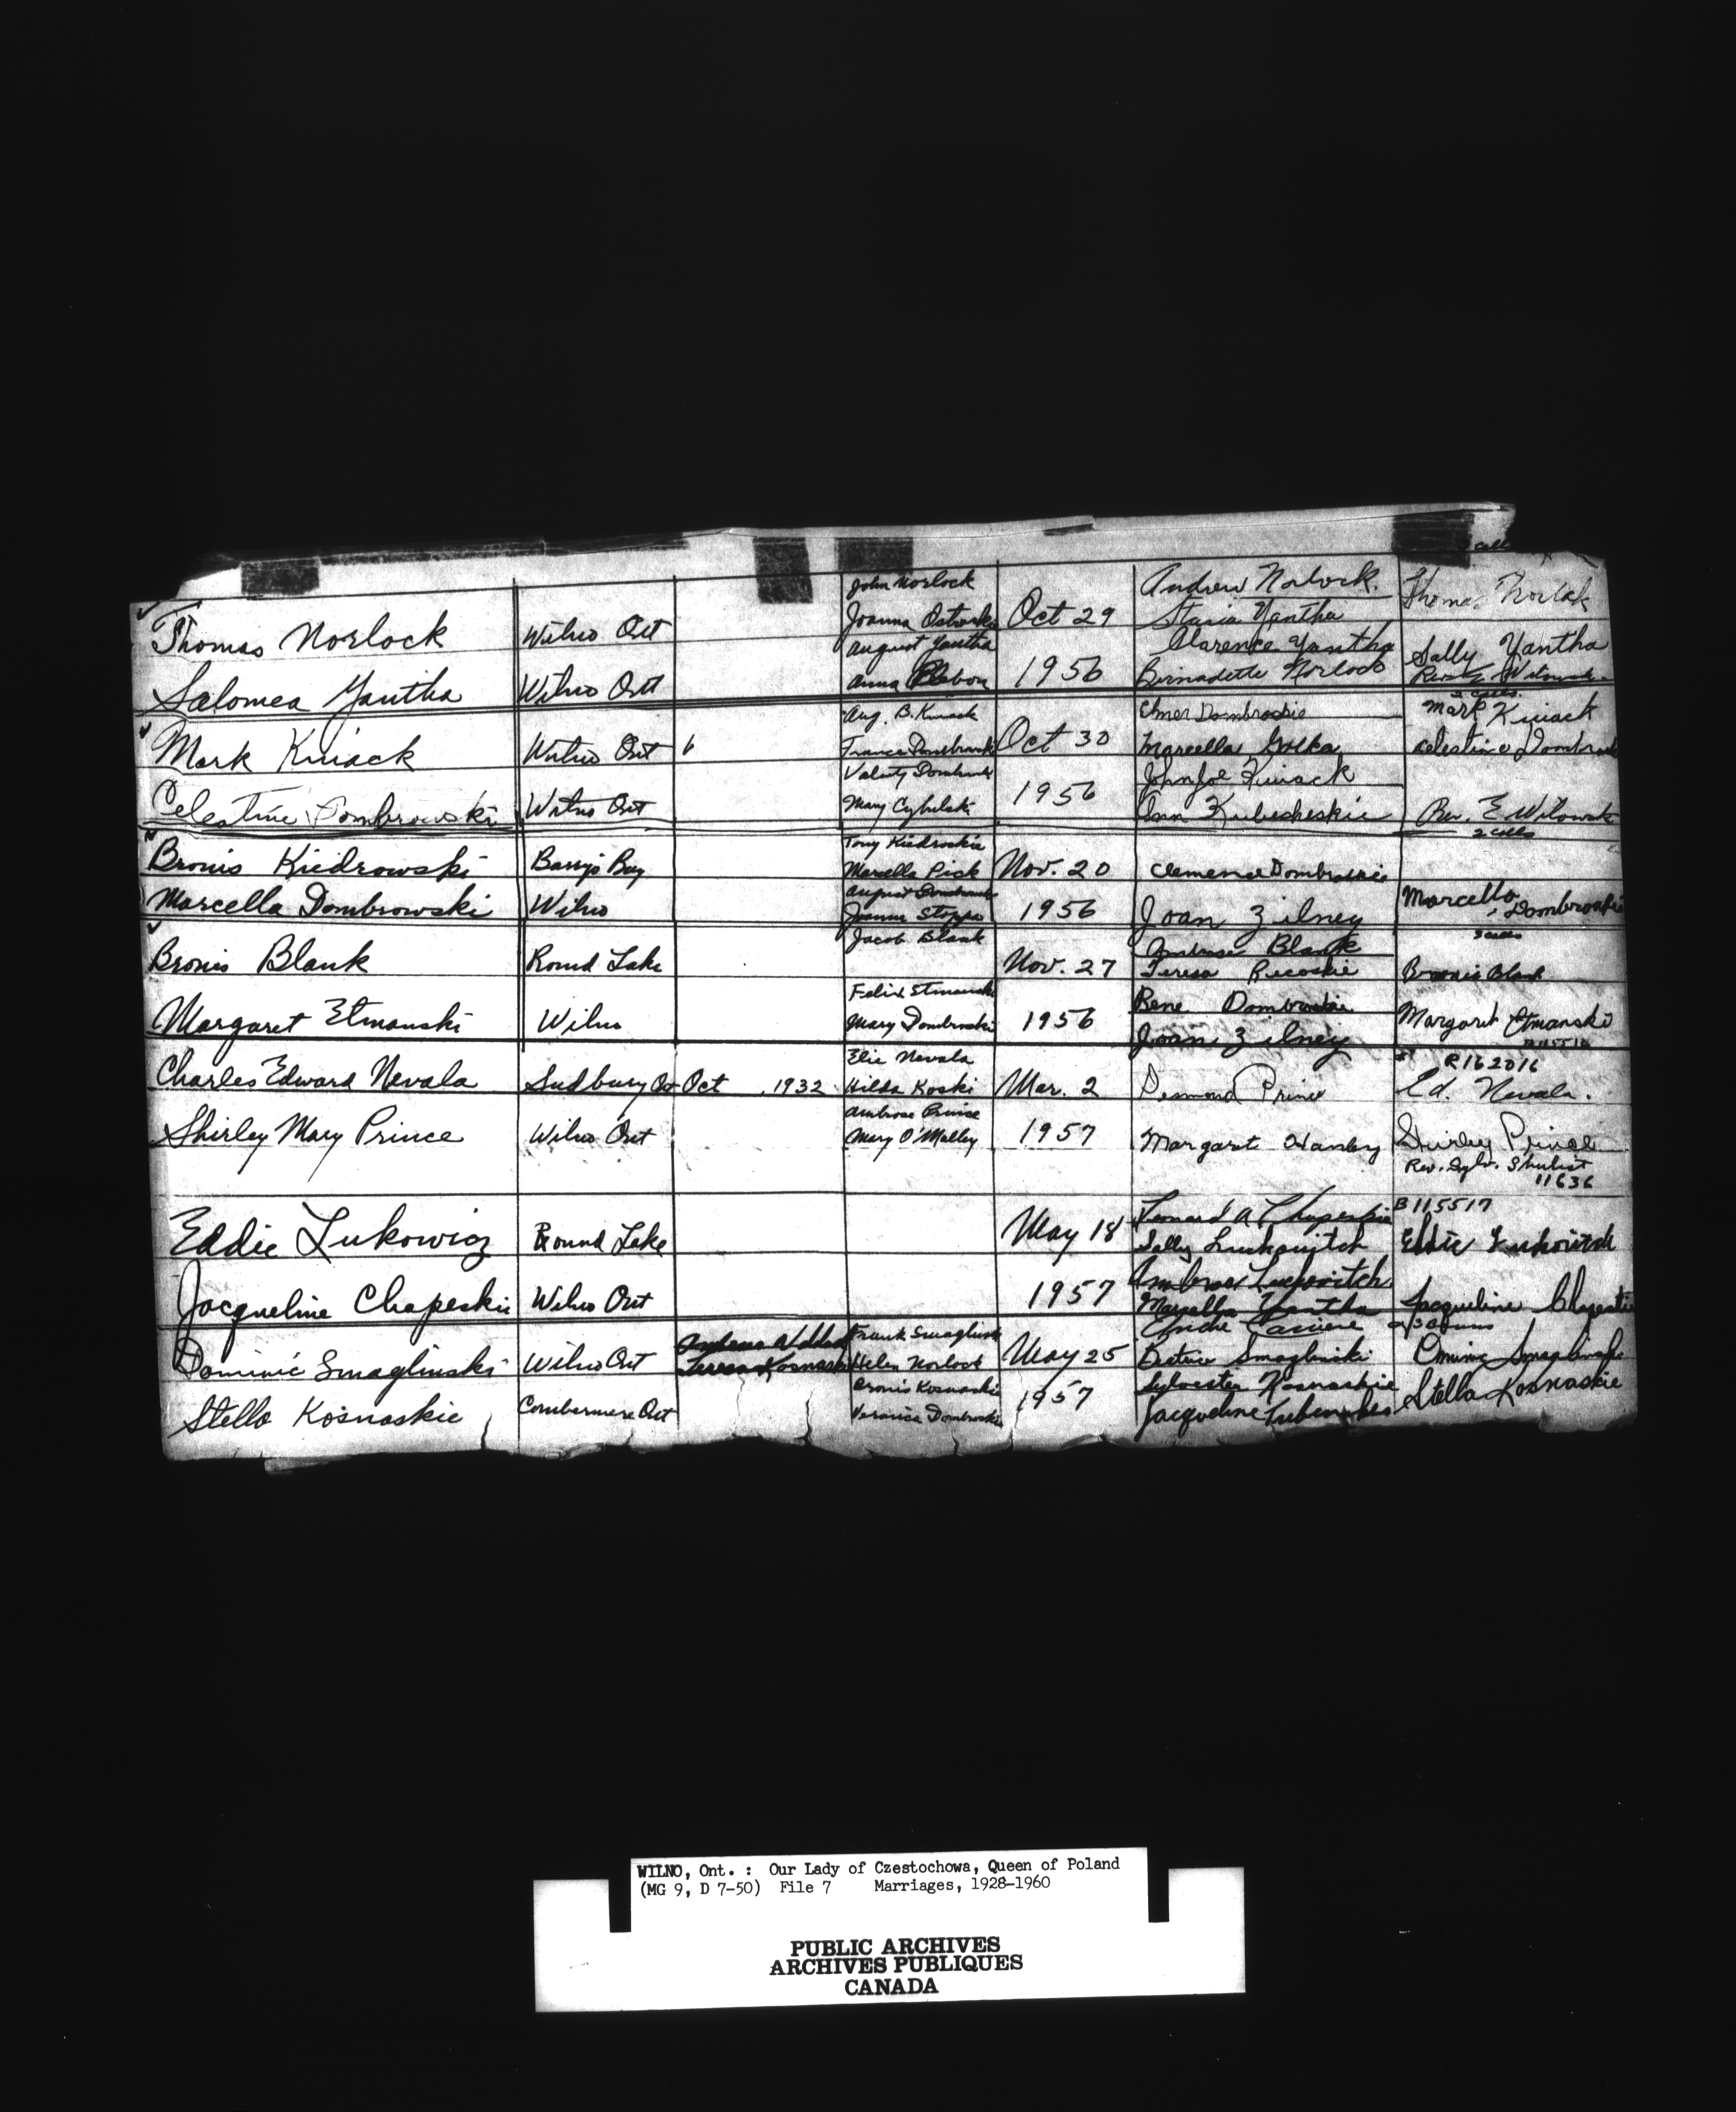 John Norlock
Andrew Norlock.
Thomas Norlock
Wilno Ont
Joanna
Oct 29
Stasia Yantha
Thomas Norlock
August Yantha
Clarence Yantha
Sally Yantha
Salomea Yantha
Wilno Ont
Anna
1956
Bernadette Norlock
Rev. E. Wilowski
3 calls.
Aug. B. Kuiack
Elmer Dombroskie
Mark Kuiack
Mark Kuiack
Wilno Ont
Frances Dombrowski
Oct 30
Marcella Golka
Celestine Dombroski
Valenty Dombroski
John Joe Kuiack
Celestine Dombrowski
Wilno Ont
Mary Cybulski
1956
Ann Kubesheskie
Rev. E Wilowski
2 calls
Tony Kiedroskie
Bronis Kiedrowski
Barry's Bay
Marcella Pick
Nov. 20
Clemence Dombroskie
August Dombrowski
Marcella Dombrowski
Wilno
Joanna Stoppa
1956
Joan Zilney
Marcella Dombroskie
3 calls
Jacob Blank
Ambrose Blank
Bronis Blank
Round Lake
Nov. 27
Teresa Recoskie
Bronis Blank
Felix Etmanski
Bene Dombroskie
Margaret Etmanski
Wilno
Mary Dombroski
1956
Joan Zilney
Margaret Etmanski
B115516
Elie Nevala
R162016
Charles Edward Nevala
Sudbury Ont
Oct 1932
Hilda Koski
Mar. 2
Desmond Prince
Ed. Nevala.
Ambrose Prince
Shirley Mary Prince
Wilno Ont
Mary O'Malley
1957
Margaret Hanley
Shirley Prince
Rev. Sylv. Shulist
11636
B115517
Leonard A Chapeskie
Eddie Lukowicz
Round Lake
May 18
Sally Luckovitch
Eddie Lukovitch
Ambrose Luckovitch
Jacqueline Chapeskie
Wilno Ont
1957
Marcella Yantha
Jacqueline Chapeskie
Frank Smaglinski
Dominic Smaglinski
Wilno Ont
Teresa Kosnaskie
Helen Norlock
May 25
Smaglinski
Bronis Kosnaskie
Sylvester Kosnaskie
Stella Kosnaskie
Combermere Ont
Veronica Dombroskie
1957
Jacqueline
Stella Kosnaskie
WILNO, Ont. : Our Lady of Czestochowa, Queen of Poland
(MG 9, D 7-50) File 7 Marriages, 1928-1960
PUBLIC ARCHIVES
ARCHIVES PUBLIQUES
CANADA